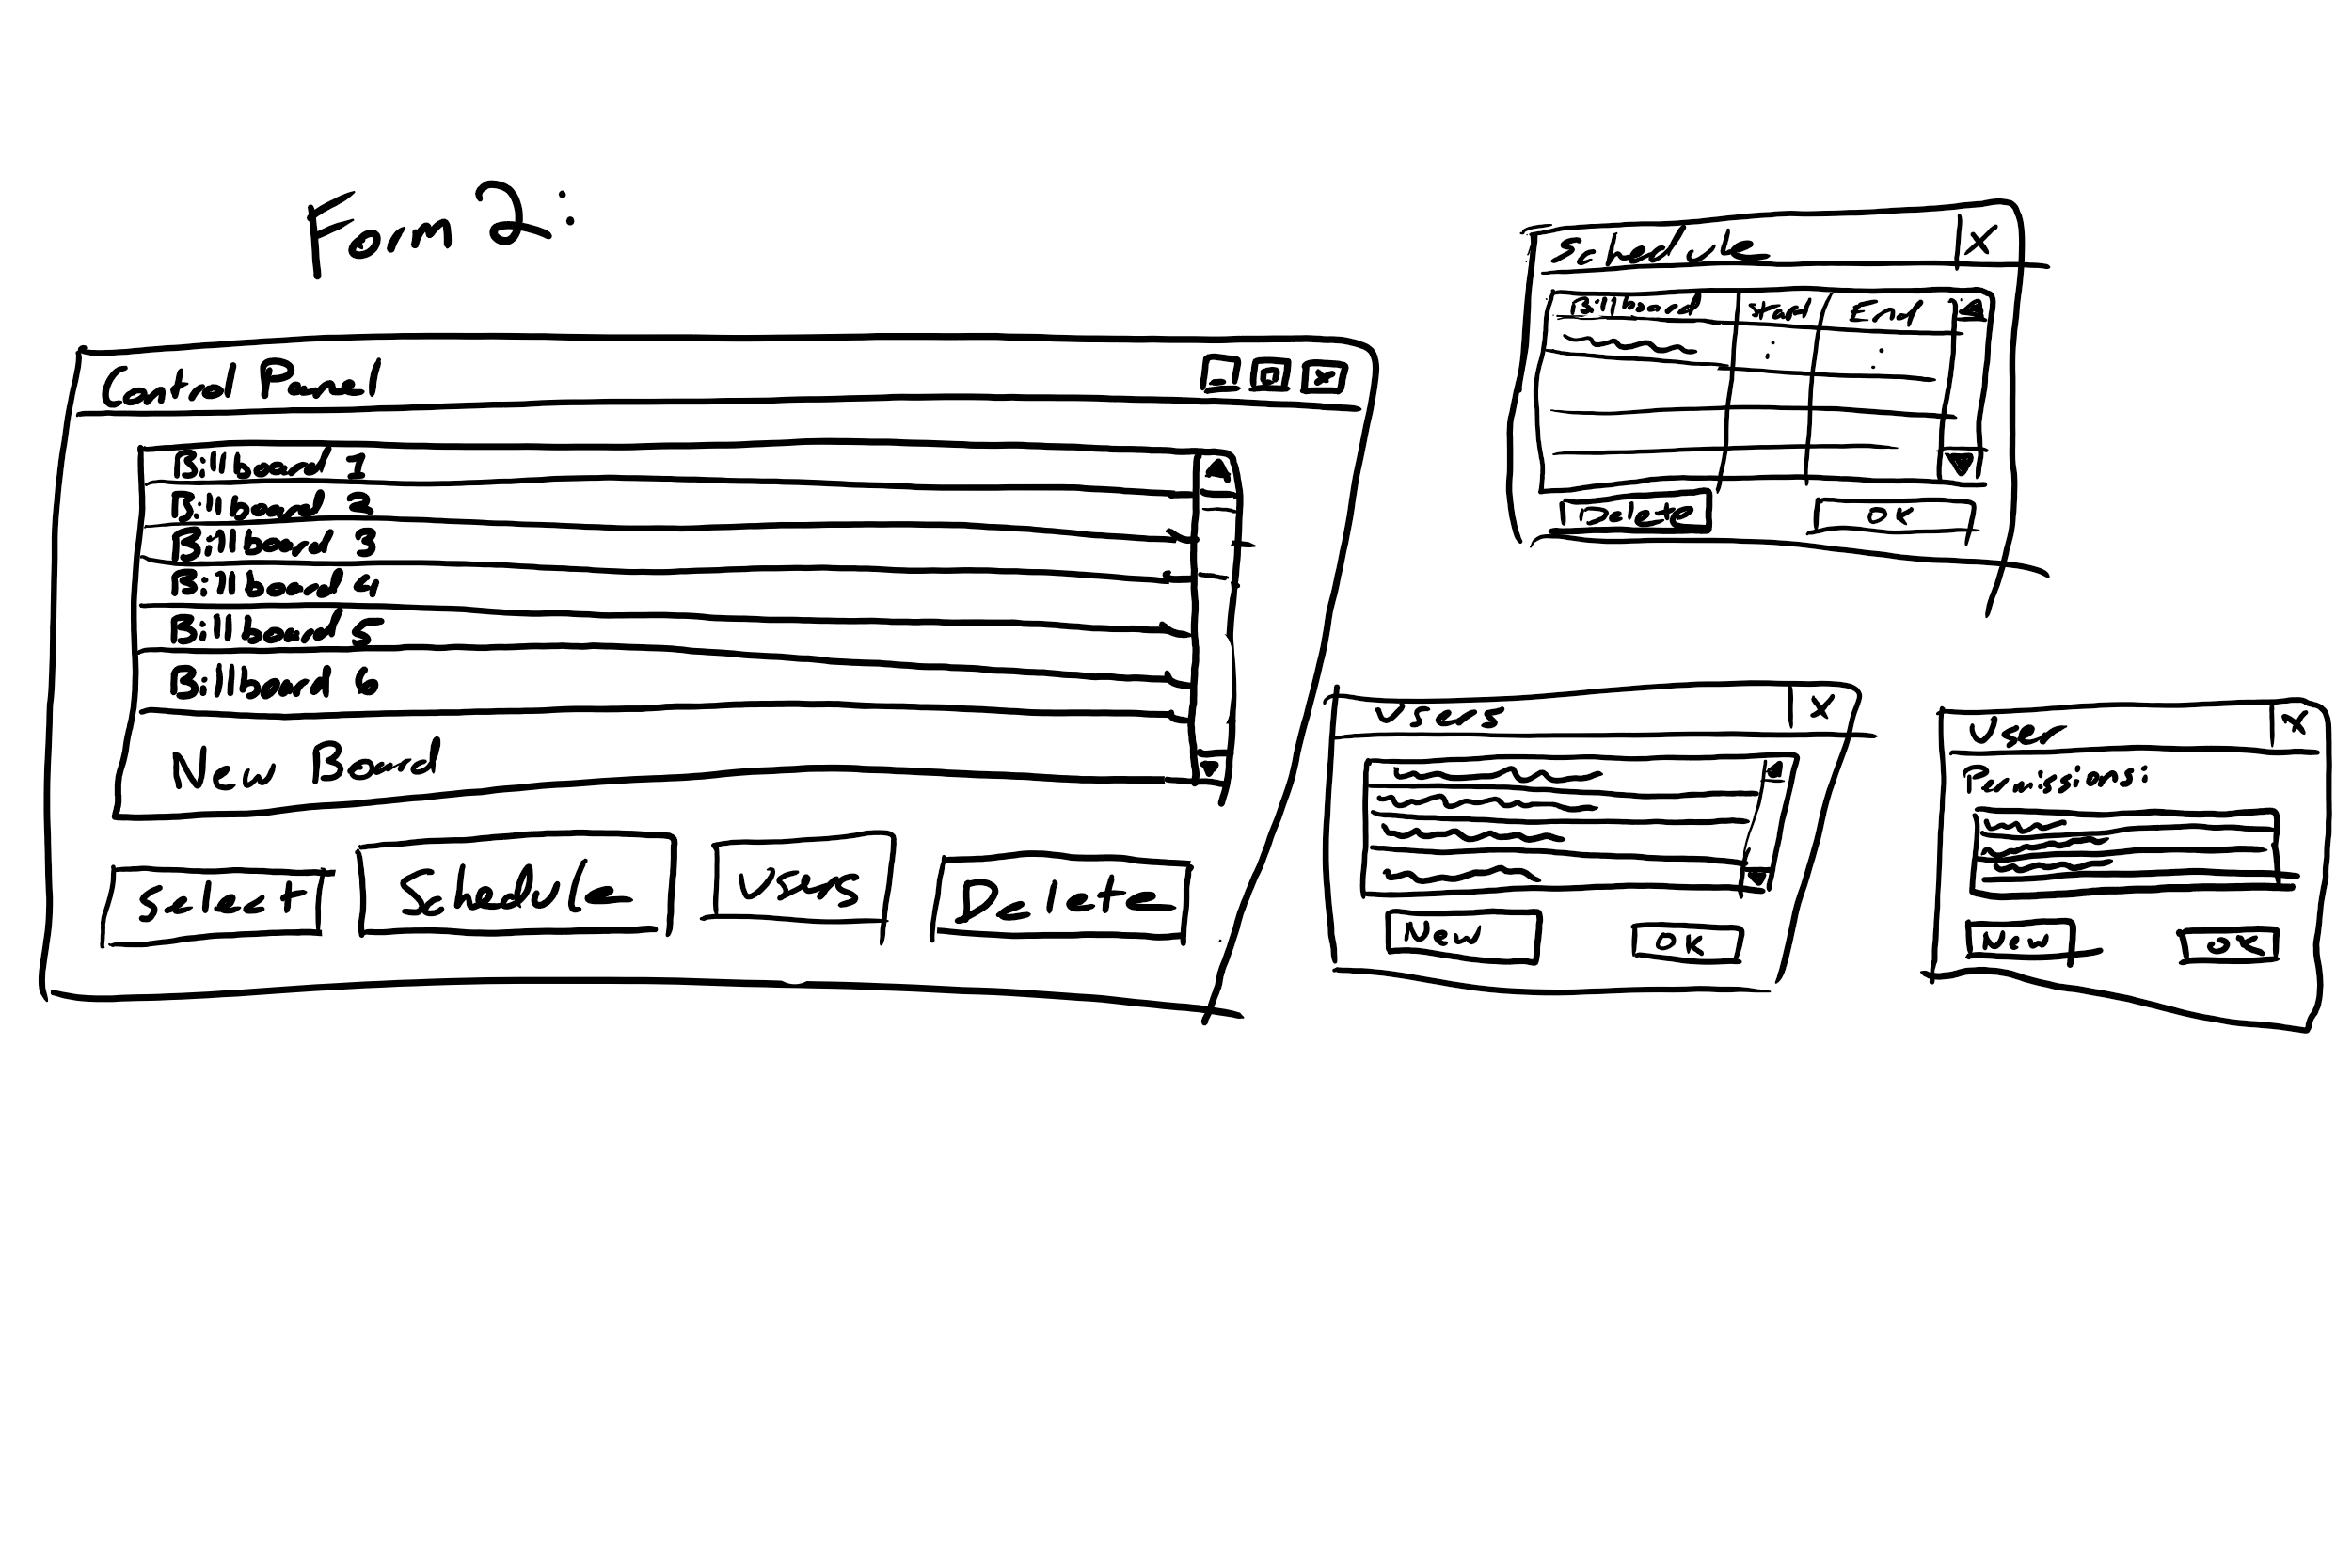 Form 2:
Control Panel
Billboard 1
Billboard 2
Billboard 3
Billboard 4
Billboard 5
Billboard 6
New Board
Select Schedule Users Delete
Schedule X
Billboard Start End
Delete OK
Users X
New OK
User X
Permissions:
New OK